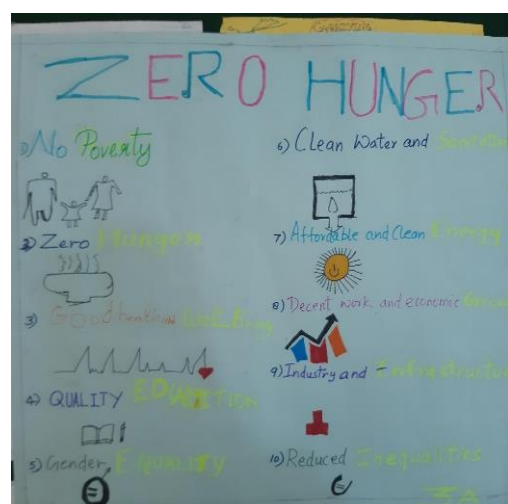 ZERO HUNGER
1) No Poverty
2) Zero Hunger
3) Good health and Well being
4) QUALITY EDUCATION
5) Gender, EQUALITY
6) Clean Water and
7) Affordable and Clean Energy
8) Decent work and economic
9) Industry and Infrastructu
10) Reduced Inequalities